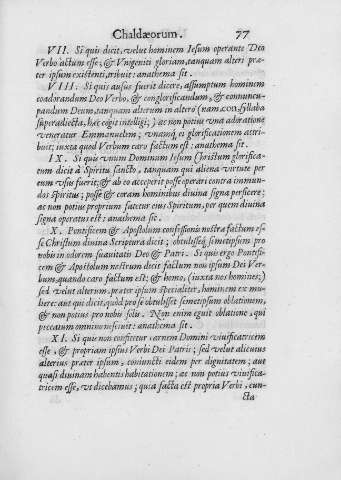 Chaldæorum. 77
VII. Si quis dicit, velut hominem Iesum operante Deo
Verbo actum esse; & Vnigeniti gloriam, tanquam alteri præ-
ter ipsum existenti, tribuit: anathema sit.
VIII. Si quis ausus fuerit dicere, assumptum hominem
coadorandum Deo Verbo, & conglorificandum, & connuncu-
pandum Deum, tanquam alterum in altero (nam, con, syllaba
superadiecta, hæc cogit intelligi;) ac non potius vna adoratione
veneratur Emmanuelem; vnamq; ei glorificationem attri-
buit; iuxta quod Verbum caro factum est: anathema sit.
IX. Si quis vnum Dominum Iesum Christum glorifica-
tum dicit à Spiritu sancto, tanquam qui aliena virtute per
eum vsus fuerit; & ab eo acceperit posse operari contra immun-
dos spiritus; posse & coram hominibus diuina signa perficere;
ac non potius proprium fatetur eius Spiritum, per quem diuina
signa operatus est: anathema sit.
X. Pontificem & Apostolum confessionis nostræ factum es-
se Christum diuina Scriptura dicit; obtulisseq; semetipsum pro
nobis in odorem suauitatis Deo & Patri. Si quis ergo Pontifi-
cem & Apostolum nostrum dicit factum non ipsum Dei Ver-
bum, quando caro factum est; & homo, (iuxta nos homines;)
sed velut alterum, præter ipsum specialiter, hominem ex mu-
liere: aut qui dicit, quòd pro se obtulisset semetipsum oblationem,
& non potius pro nobis solis. Non enim eguit oblatione, qui
peccatum omnino nesciuit: anathema sit.
XI. Si quis non confitetur, carnem Domini viuificatricem
esse, & propriam ipsius Verbi Dei Patris; sed velut alicuius
alterius præter ipsum, coniuncti eidem per dignitatem; aut
quasi diuinam habentis habitationem; ac non potius viuifica-
tricem esse, vt dicebamus; quia facta est propria Verbi, cun-
cta